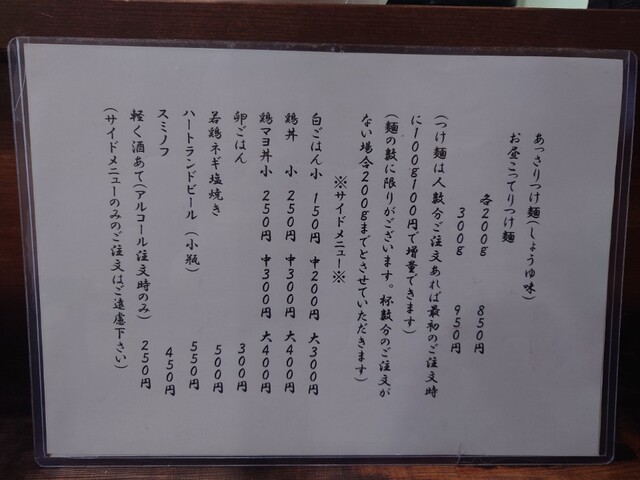 あっさりつけ麺(しょうゆ味)
お昼こってりつけ麺
各200g 850円
300g 950円
(つけ麺は人数分ご注文あれば最初のご注文時
に100g100円で増量できます)
(麺の数に限りがございます。杯数分のご注文が
ない場合200gまでとさせていただきます)
※サイドメニュー※
白ごはん小 150円 中200円 大300円
鶏丼 小 250円 中300円 大400円
鶏マヨ丼小 250円 中300円 大400円
卵ごはん 300円
若鶏ネギ塩焼き 500円
ハートランドビール(小瓶) 550円
スミノフ 450円
軽く酒あて(アルコール注文時のみ) 250円
(サイドメニューのみのご注文はご遠慮下さい)